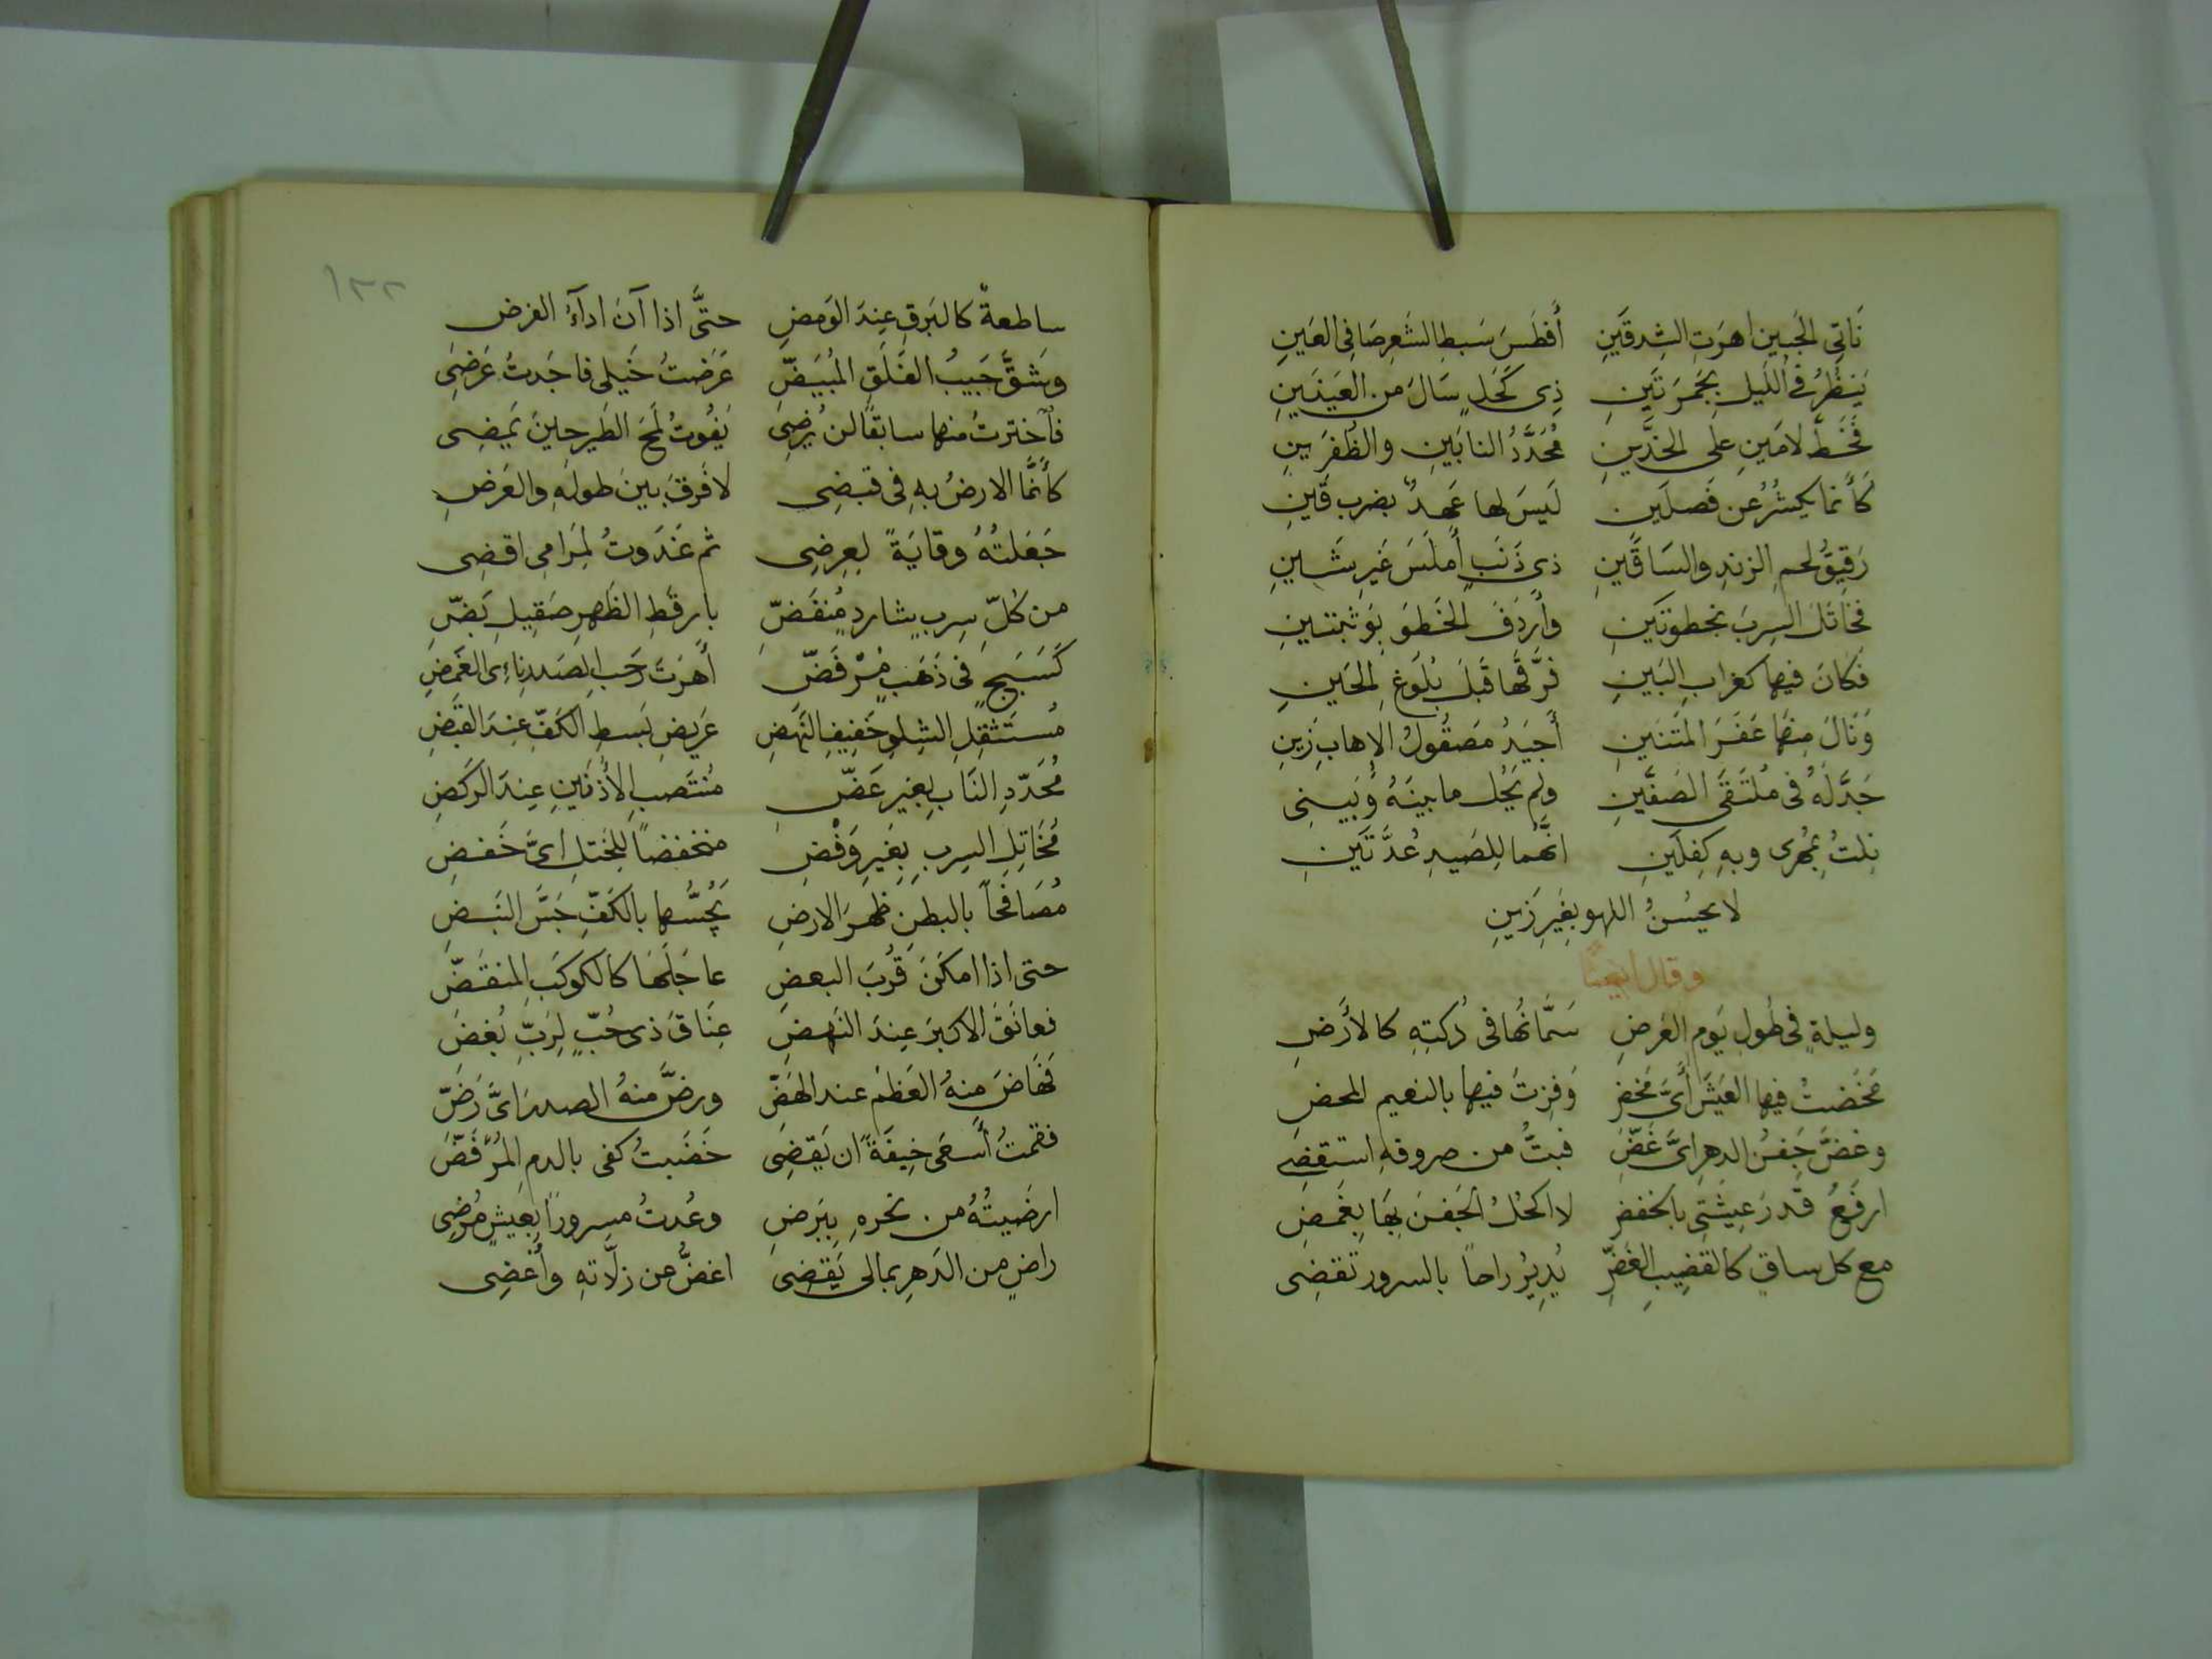 نَاتِى الجَبين اهرَتِ الشِدقَينِ أَفطَسَ سَبطِ الشَعرِ صَافِى العَينِ
يَنظُرُ فى اللَيلِ بجَمرَتَينِ ذِى كَحَلٍ سَالَ من العَينَينِ
فَخَطَّ لامَينِ على الخدَّينِ مُحَدَّدُ النابَينِ والظُفرَينِ
كَأَنما يكشُرُ عن فَصلَين لَيسَ لها عَهدٌ بضرب قَينِ
رَقيِقُ لحمِ الزندِ والسَاقَينِ ذِى ذَنَبٍ أَملَسَ غَيرِ شَينِ
فَخَاتَلَ السِربَ بخطوتَينِ وأَردَفَ الخَطوَ بوَثبتَينِ
فَكانَ فيها كغرابِ البَينِ فرَّقَها قَبلَ بُلوغِ الحَينِ
وَنَالَ مِنهَا عَفَرَ المَتنَينِ أَجيَدُ مَصقُولُ الإهابِ زَينِ
جَدَّلَهُ فى مُلتَقَى الصَفَّينِ ولم يَحُل ما بينَهُ وبَينِى
نِلتُ بمُهرى وبهِ كِفلَينِ انَّهُما لِلصَيدِ عُدَّتَينِ
لا يحسُنُ اللهو بغَيرِ زَينِ
وقال ايضًا
وليلةٍ فى طُولِ يَومِ العَرضِ سَمَّانُها فى دُكنتِهِ كالأَرضِ
مَخَضتُ فيها العَيشَ أَىَّ مَخضِ وَفِزتُ فيها بالنعيم المحضِ
وغضَّ جَفنُ الدهرِ اىَّ غَضِّ فبتُّ من صروفهِ استقضِى
ارفَعُ قدرَ عِيشَتِى بالخَفضِ لا اكحُلُ الجَفنَ بِهَا بِغَمضِ
مع كل ساقٍ كالقَضِيبِ الغَضِّ يُدِيرُ راحاً بالسرور تقضِى
١٢٢
ساطعةً كالبَرقِ عِندَ الوَمضِ حتَّى اذا آنَ اداءُ الفرضِ
وشَقَّ جَيبُ الفَلَقِ المُبيَضِّ عَرَضتُ خَيلى فاجَدتُ عَرضِى
فاخترتُ منها سابقًا لن يُرضِى يَفُوتُ لَمحَ الطَيرِ حِينَ يَمضِى
كأَنَّمَا الارضُ بهِ فى قبضِى لا فَرقَ بينَ طولهِ والعَرضِ
جَعَلتُهُ وِقايَةً لعِرضِى ثم غَدَوتُ لِمَرامِى اقضِى
من كُلِّ سِربٍ شاردٍ مُنفَضِّ بارقَطِ الظَهرِ صَقِيلِ بَضِّ
كَسَبَجٍ فى ذَهَبٍ مُرْفَضِّ أَهرَتَ رَحبِ الصَدرِ نائِى الغَمضِ
مُستَثقَلِ الشِلوِ خَفِيفِ النَهضِ عَرِيضِ بَسطِ الكَفِّ عِندَ القَبضِ
مُحَدَّدِ النَابِ لِغيرِ عَضِّ مُنتَصبِ الأُذنَينِ عِندَ الرَكضِ
مُخَاتِلِ السِربِ بِغَيرِ وَفْضِ منخفضاً للخَتلِ اىَّ خَفضِ
مُصَافحاً بالبطنِ ظهرَ الارضِ يَجُسُّها بالكَفِّ جَسَّ النَبضِ
حتى اذا امكَنَ قُربَ البعضِ عاجَلَهَا كالكوكَبِ المنقَضِّ
فعانَقَ الاكبَرَ عِندَ النَهضِ عِنَاقَ ذى حُبٍّ لِرَبِّ بُغضِ
فَهَاضَ مِنهُ العَظمَ عند الهَضِّ ورضَّ منهُ الصدرَ اىَّ رَضِّ
فقمتُ أَسعَى خِيفَةً ان يَقضِى خَضَبتُ كفى بالدمِ المُرْفَضِّ
ارضَيتُهُ من نحرهِ بِبَرضِ وعُدتُ مسروراً بعَيشٍ مُرضِى
راضٍ من الدَهرِ بما لى يَقضِى اغضُّ عن زلَّاتهِ وأُغضِى